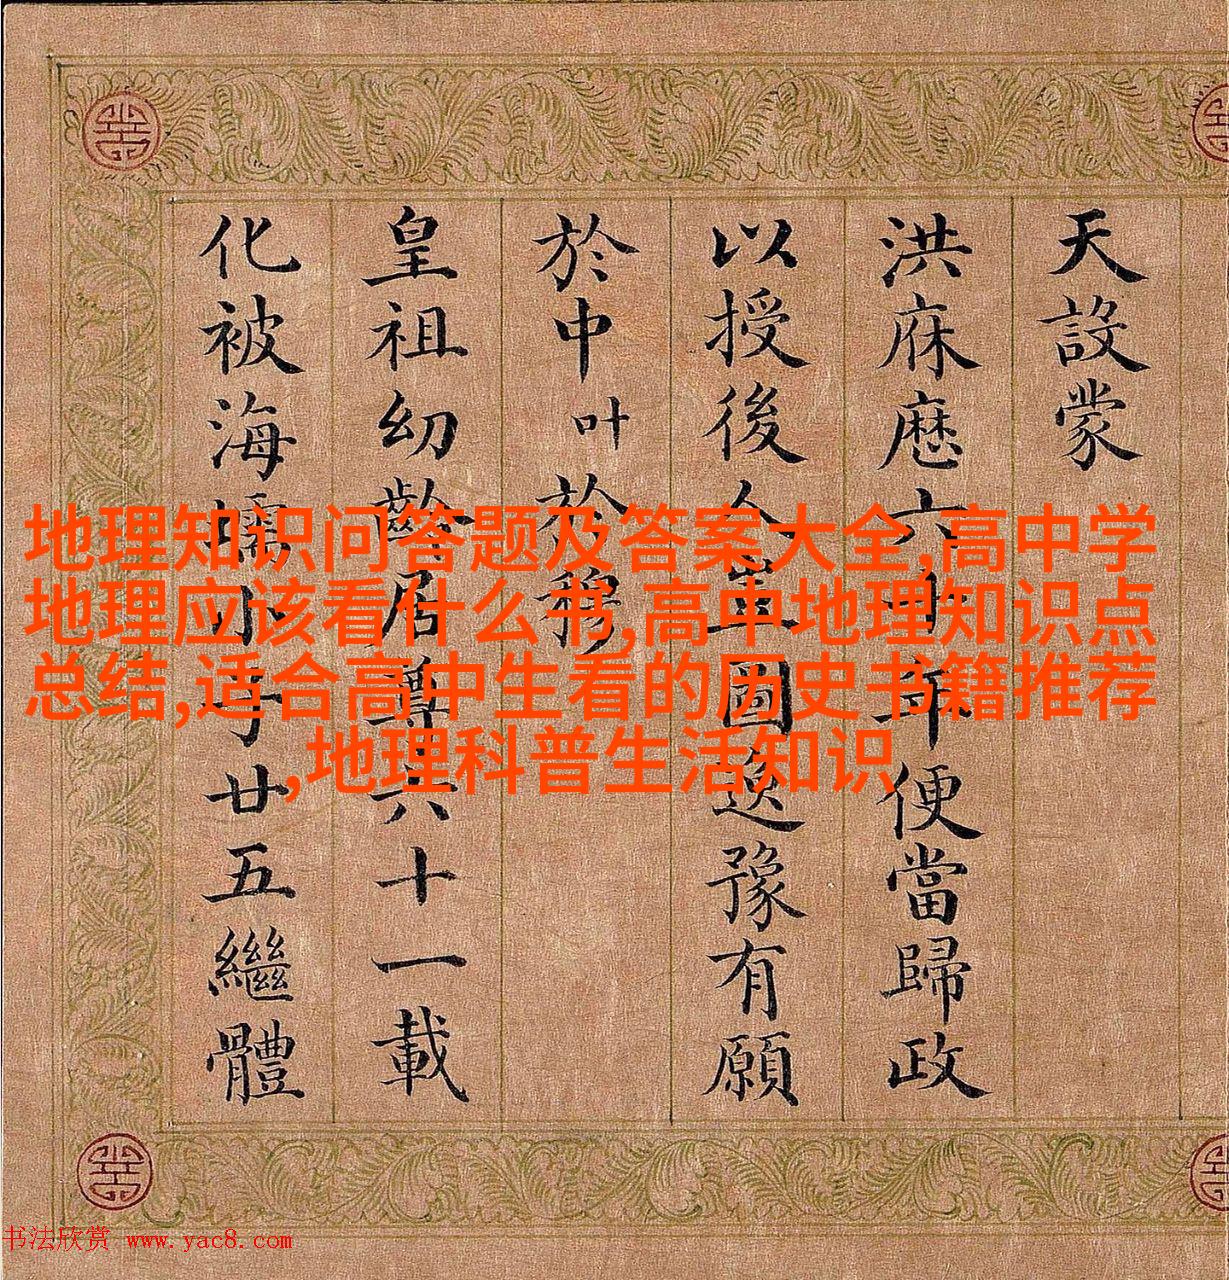 天設蒙
洪庥厯六十年便當歸政
以授後人豈圖逸豫有願
於中叶於穆
皇祖幼齡居尊六十一載
化被海壖小子廿五繼體
地理知识问答题及答案大全,高中学
地理应该看什么书,高中地理知识点
总结,适合高中生看的历史书籍推荐
,地理科普生活知识
书法欣赏 www.yac8.com